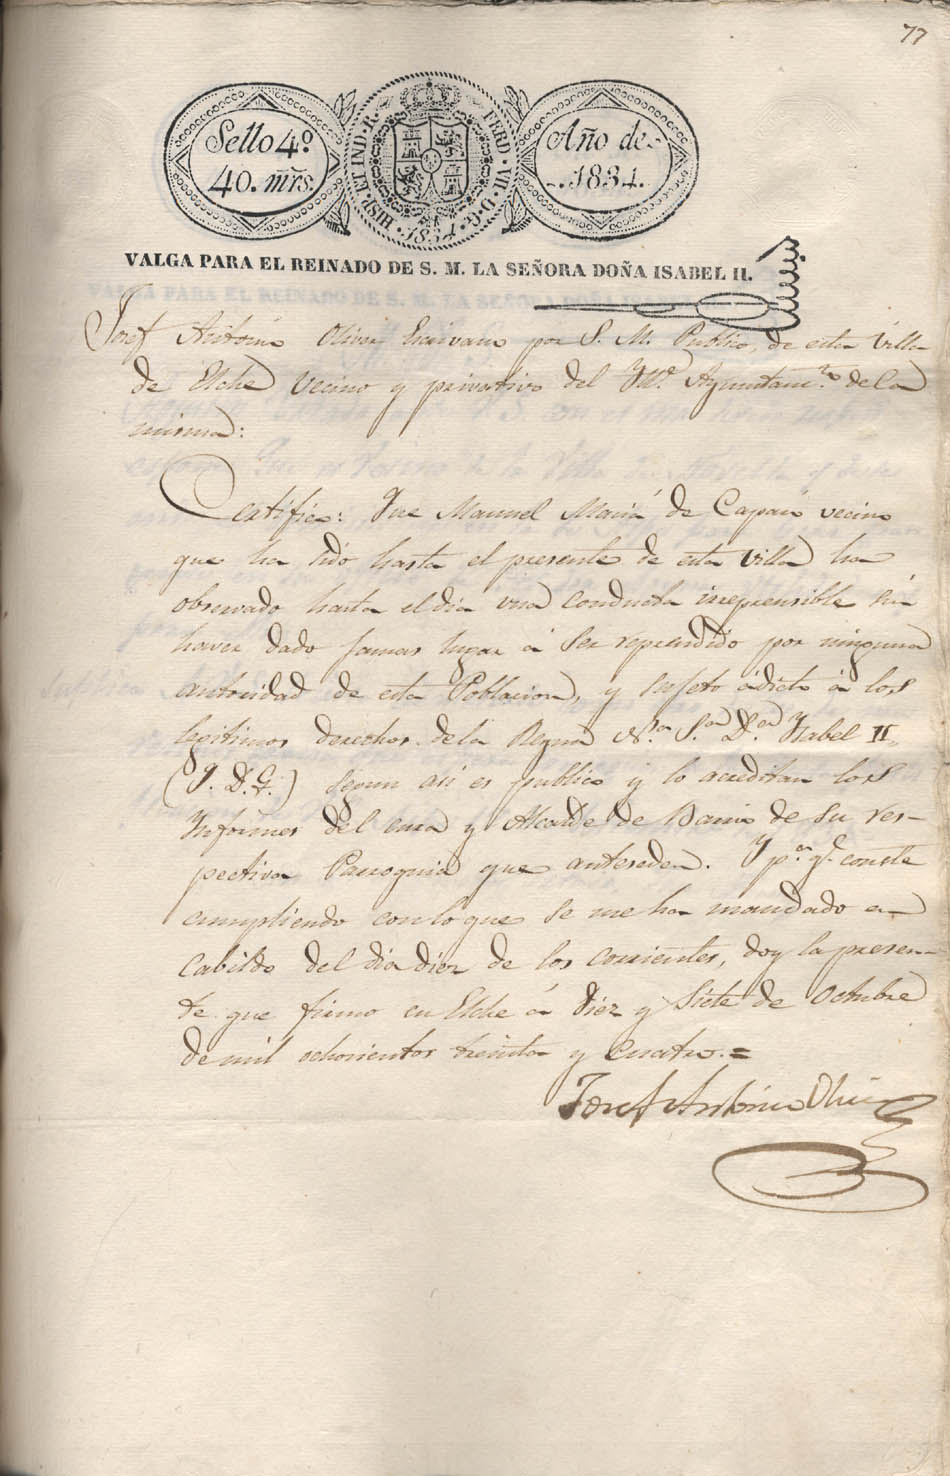 77
Sello 4º
40. mrs.
HISP. ET IND. R. FERD. VII. D. G. 1834.
Año de
1834.
VALGA PARA EL REINADO DE S. M. LA SEÑORA DOÑA ISABEL II.
Josef Antonio Oliver Escrivano por S. M. Publico, de esta Villa
de Elche Vecino y privativo del Yltre. Ayuntamto. de la
misma:
Certifico: Que Manuel Maria de vecino
que ha sido hasta el presente de esta villa ha
observado hasta el dia una conducta irreprensible sin
haver dado jamas lugar á ser reprendido por ninguna
autoridad de esta Poblacion, y sujeto ádicto á los
legitimos derechos de la Reyna Nra. Sra. Da. Ysabel II.
(q. D. G.) segun asi es publico y lo acreditan los
Informes del cura y Alcalde de Barrio de su res-
pectiva Parroquia que anteseden. Y pa. qe. conste
cumpliendo con lo que se me ha mandado en
Cabildo del dia diez de los corrientes, doy la presen-
te que firmo en Elche á diez y siete de Octubre
de mil ochocientos treinta y cuatro.=
Josef Antonio Oliver